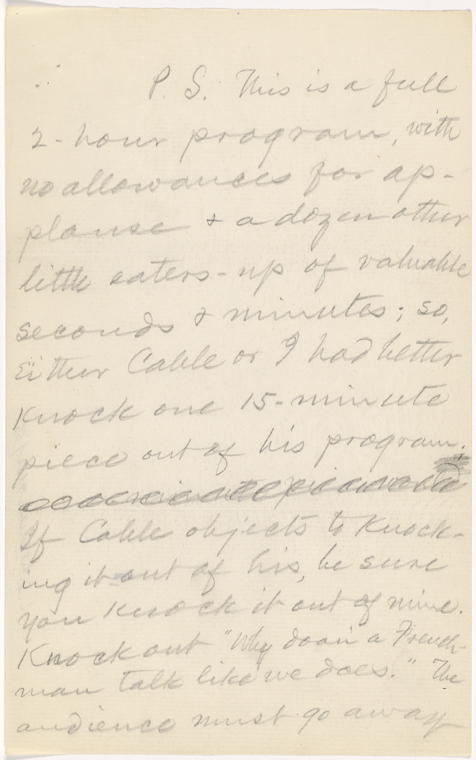 P. S. This is a full
2-hour program, with
no allowances for ap-
plause & a dozen other
little eaters-up of valuable
seconds & minutes; so,
Either Cable or I had better
knock one 15-minute
piece out of his program.
If Cable objects to knock-
ing it out of his, be sure
you knock it out of mine.
Knock out "Why doan a French-
man talk like we does." The
audience must go away